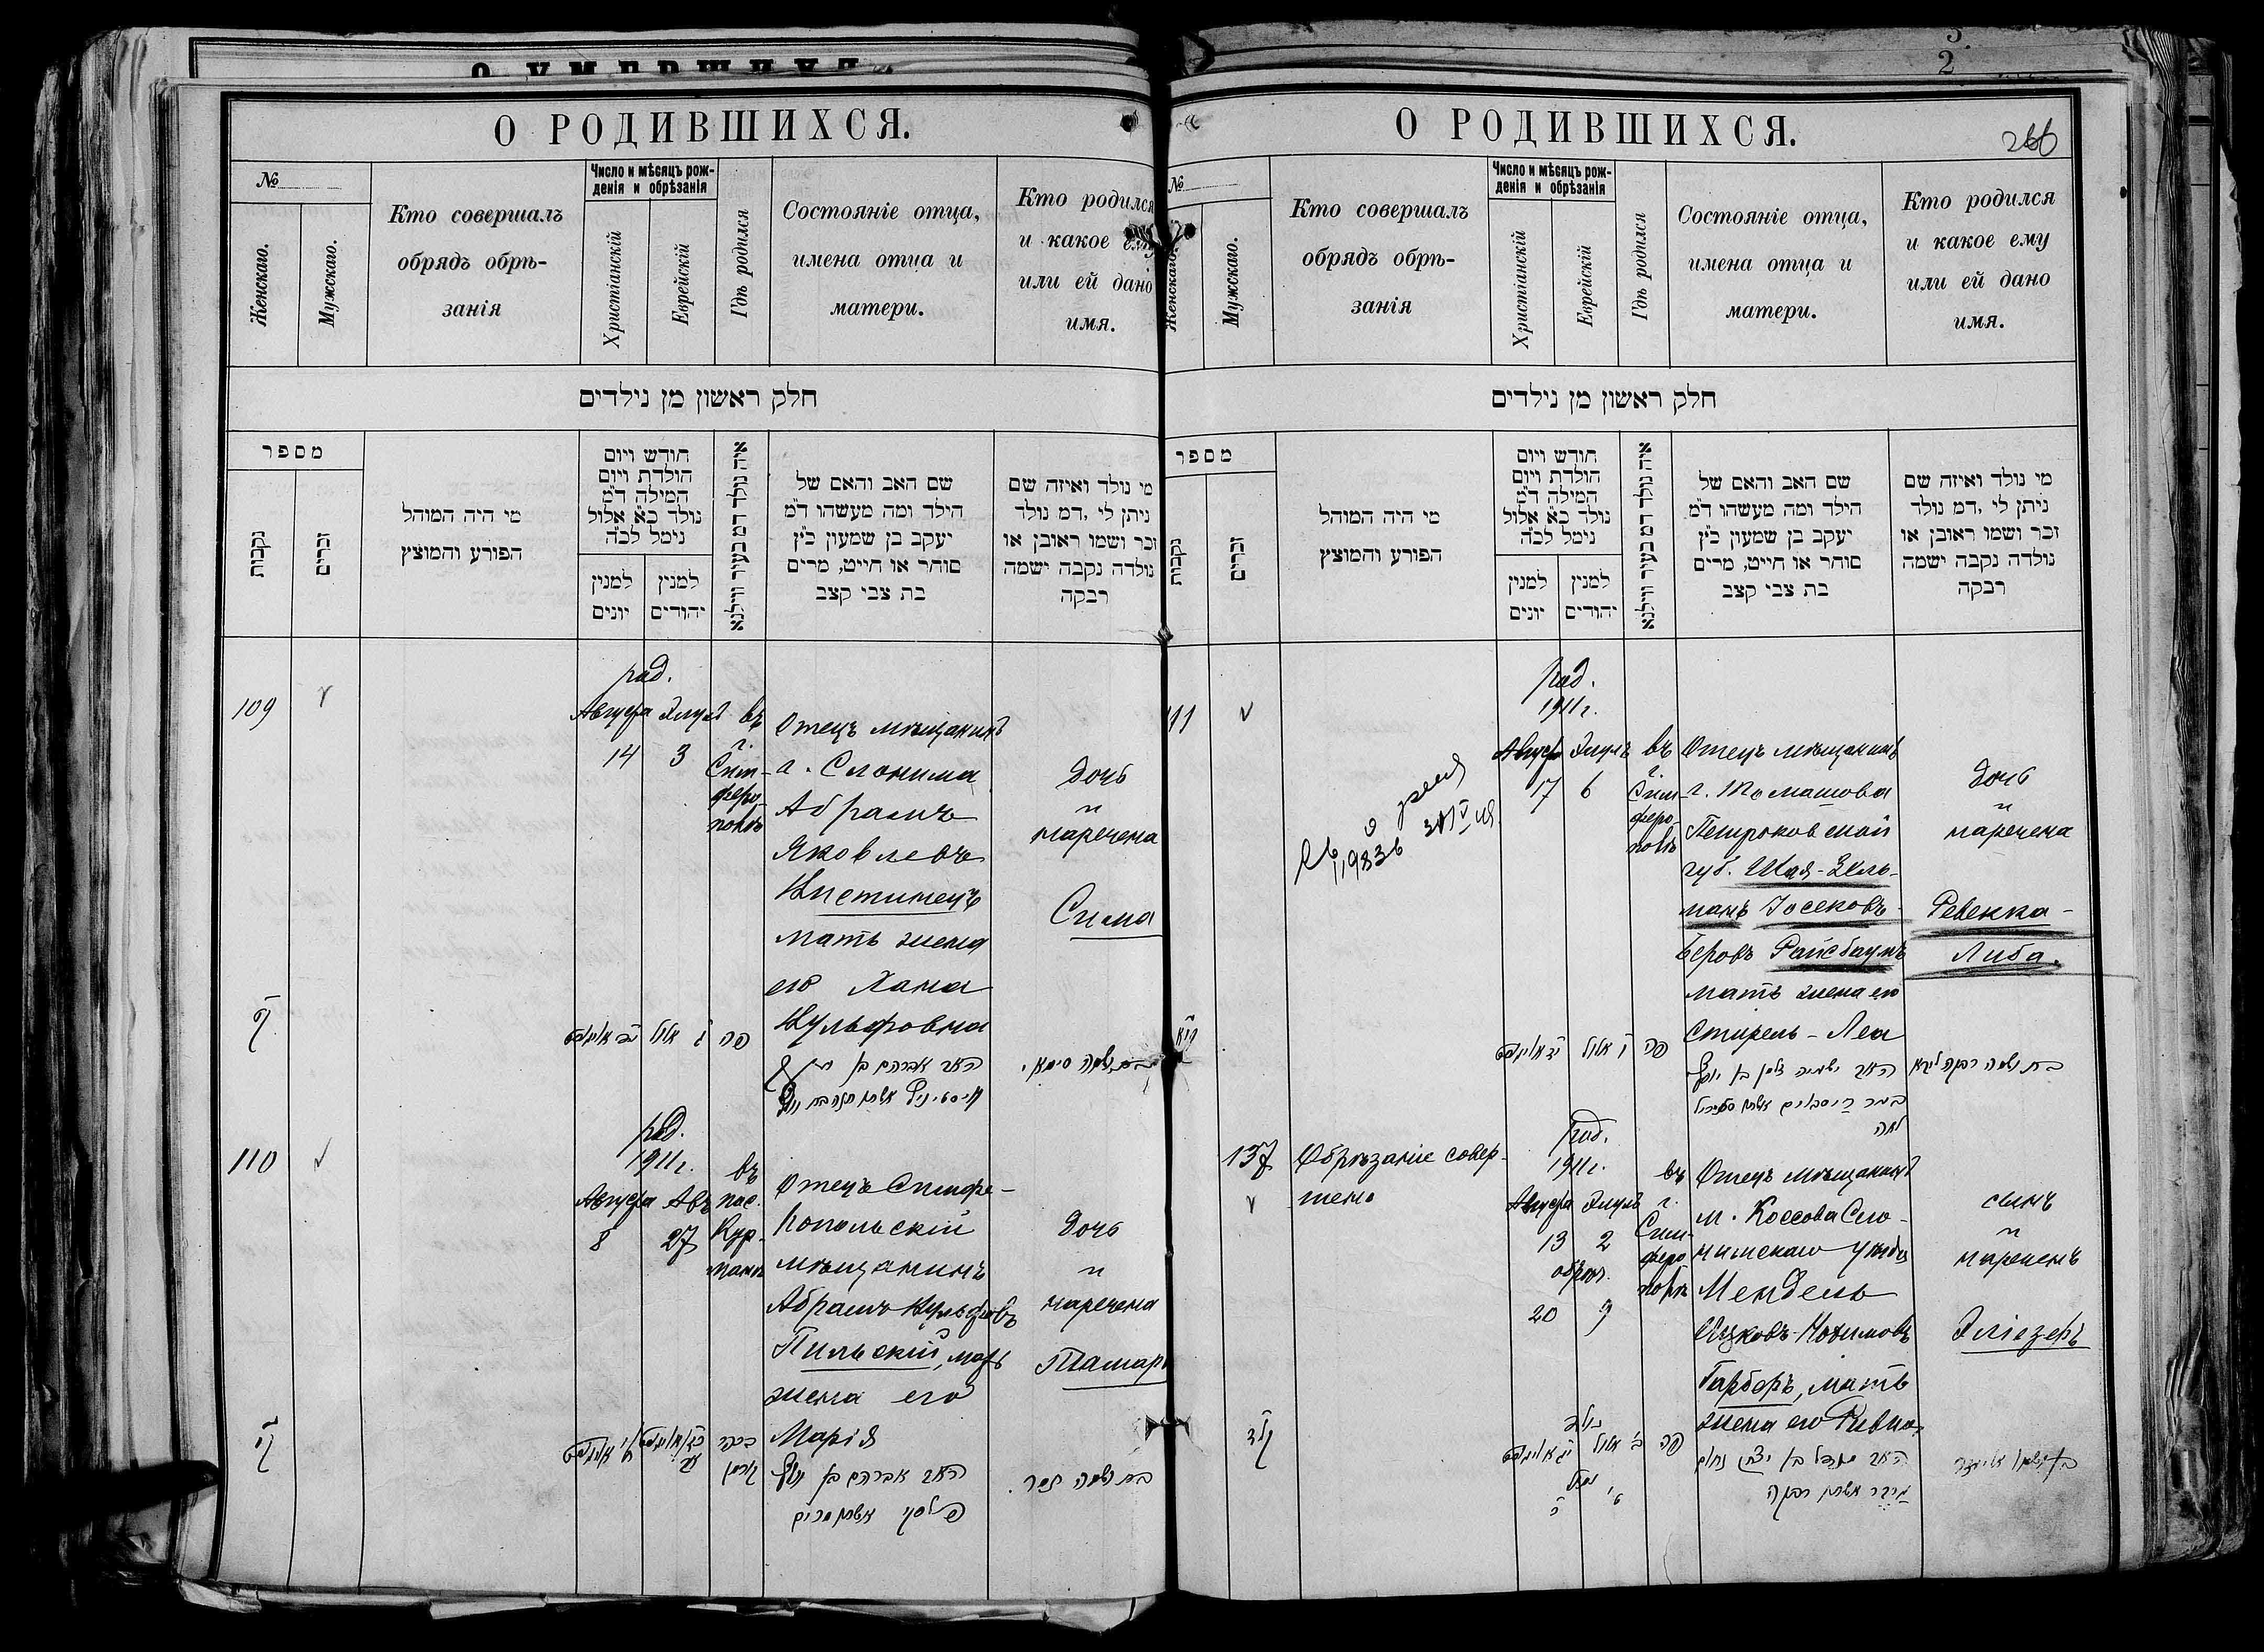 О УМЕРШИХЪ
О РОДИВШИХСЯ.
№
Женскаго.
Мужскаго.
Кто совершалъ
обрядъ обрѣ-
занія
Число и мѣсяцъ рож-
денія и обрѣзанія
Христіанскій
Еврейскій
Гдѣ родился
Состояніе отца,
имена отца и
матери.
Кто родился
и какое ему
или ей дано
имя.
חלק ראשון מן נילדים
מספר
נקבות
זכרים
מי היה המוהל
הפורע והמוצץ
חודש ויום
הולדת ויום
המילה ד״מ
נולד כ״א אלול
נימל לכ״ה
למנין
יונים
למנין
יהודים
איה נולד דמ בעיר ווילנא
שם האב והאם של
הילד ומה מעשהו ד״מ
יעקב בן שמעון כ״ץ
סוחר או חייט, מרים
בת צבי קצב
מי נולד ואיזה שם
ניתן לי, דמ נולד
זכר ושמו ראובן או
נולדה נקבה ישמה
רבקה
109
род.
Августа Элулъ
14 3
въ
г.
Сим-
феро-
полѣ
Отецъ мѣщанинъ
г. Слонима
Абрамъ
Яковлевъ
Мать жена
его Хана
Вульфовна
Дочь
и
наречена
Сима
ג׳ אלול
פה
האב אברהם בן
110
род.
1911 г.
Августа Авъ
8 27
въ
пос.
Кур-
манѣ
Отецъ Симфе-
ропольскій
мѣщанинъ
Абрамъ Вульфовъ
Пильскій, мать
жена его
Марія
Дочь
и
наречена
Тамара
האב אברהם בן
אשתו מרים
בת ושמה תמר.
3.
2
О РОДИВШИХСЯ.
266
№
Женскаго.
Мужскаго.
Кто совершалъ
обрядъ обрѣ-
занія
Число и мѣсяцъ рож-
денія и обрѣзанія
Христіанскій
Еврейскій
Гдѣ родился
Состояніе отца,
имена отца и
матери.
Кто родился
и какое ему
или ей дано
имя.
חלק ראשון מן נילדים
מספר
נקבות
זכרים
מי היה המוהל
הפורע והמוצץ
חודש ויום
הולדת ויום
המילה ד״מ
נולד כ״א אלול
נימל לכ״ה
למנין
יונים
למנין
יהודים
איה נולד דמ בעיר ווילנא
שם האב והאם של
הילד ומה מעשהו ד״מ
יעקב בן שמעון כ״ץ
סוחר או חייט, מרים
בת צבי קצב
מי נולד ואיזה שם
ניתן לי, דמ נולד
זכר ושמו ראובן או
נולדה נקבה ישמה
רבקה
111
род.
1911 г.
Августа Элулъ
17 6
въ
г.
Сим-
феро-
полѣ
Отецъ мѣщанинъ
г. Томашова
Петроковской
губ. Шая-Зель-
манъ Іосековъ-
Беровъ Райсбаумъ
мать жена его
Стирель-Леа
Дочь
и
наречена
Ревекка-
Либа.
ו׳ אלול
פה
לאה
137
Обрѣзаніе совер-
шено
род.
1911 г.
Августа Элулъ
13 2
обрѣз.
20 9
въ
г.
Сим-
феро-
полѣ
Отецъ мѣщанинъ
м. Коссова Сло-
нимскаго уѣзда
Мендель
Ицковъ-Нохимовъ
Гарберъ, мать
жена его Ривка
сынъ
и
нареченъ
Эліезеръ
ב׳ אלול
פה
אשתו רבקה